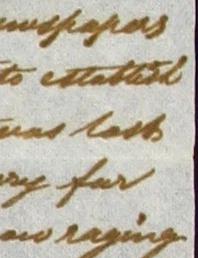 ewspapers
to establish
was last
ry far
ow raging